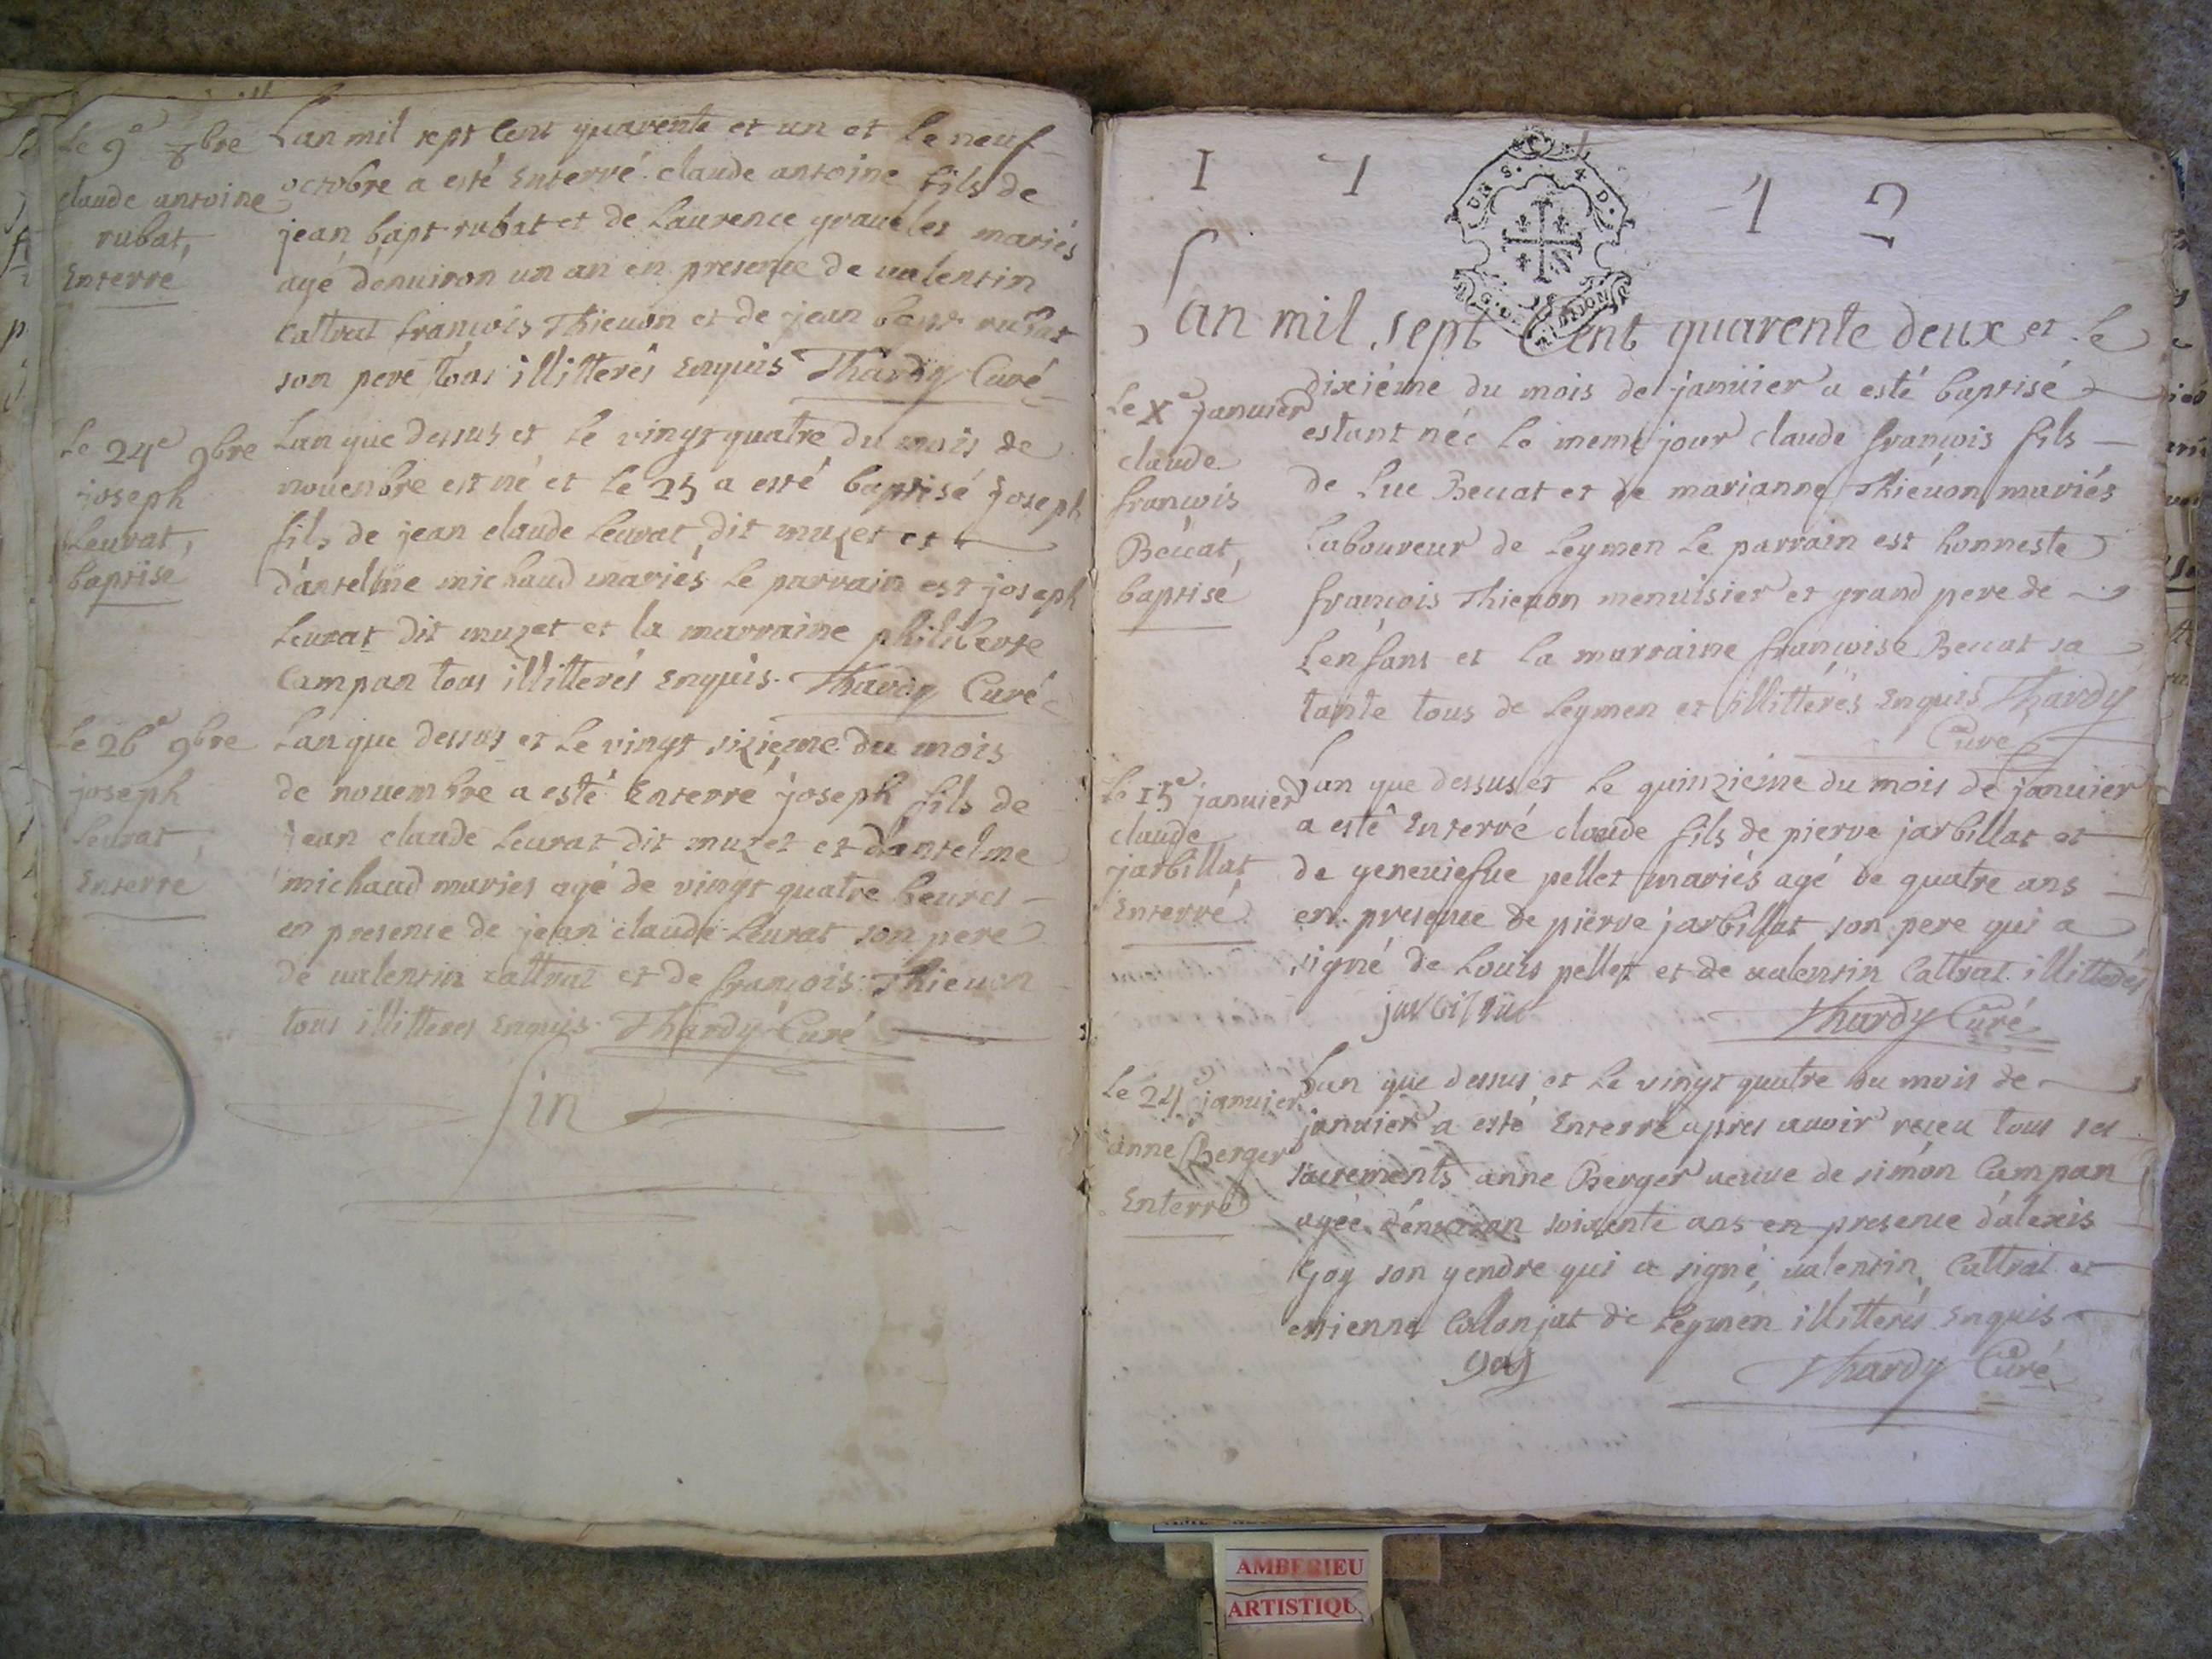 Le 9e 8bre
claude antoine
rubat,
Enterre
Lan mil sept Cent quarente et un et le neuf
octobre a esté Enterré claude antoine fils de
jean bapt rubat et de Laurence grauelet mariés
agé denuiron un an en presence de ualentin
Cattrat françois Thieuon et de jean bapt rubat
son pere tous illitterés Enquis Thardy Curé
Le 24e 9bre
joseph
Leurat,
baptise
Lan que dessus et le vingt quatre du mois de
nouenbre est né et le 25 a esté baptisé joseph
fils de jean claude Leurat dit muzet et
d'antelme michaud mariés le parrain est joseph
Leurat dit muzet et la marraine philiberte
Campan tous illitterés Enquis. Thardy Curé
Le 26e 9bre
joseph
Leurat
Enterre
Lan que dessus et Le vingt sixieme du mois
de nouembre a esté Enterré joseph fils de
jean claude Leurat dit muzet et d'antelme
michaud mariés agé de vingt quatre heures
en presence de jean claude Leurat son pere
de ualentin cattrat et de françois Thieuon
tous illitteres Enquis Thardy Curé
fin
1 7 4 2
Lan mil sept Cent quarente deux et le
Le Xe januier
claude
françois
Becat,
baptisé
dixiéme du mois de januier a esté baptisé
estant née le meme jour claude françois fils
de Luc Becat et de marianne Thiéuon mariés
Laboureur de Leymen Le parrain est honneste
françois Thieuon menuisier et grand pere de
L'enfant et la marraine françoise Becat sa
tante tous de Leymen et illitterés Enquis Thardy
Curé
Le 15e januier
claude
jarbillat,
Enterré
Lan que dessus et Le quinzieme du mois de januier
a esté Enterré claude fils de pierre jarbillat et
de geneuiefue pellet mariés agé de quatre ans
en presence de pierre jarbillat son pere qui a
signé de Louis pellet et de ualentin Cattrat illitterés
Thardy Curé
Le 24e januier
anne Berger
Enterré
Lan que dessus et Le vingt quatre du mois de
januier a esté Enterré apres auoir receu tous ses
sacrements anne Berger ueuue de simon Campan
agée d'enuiron soixente ans en presence d'alexis
Goy son gendre qui a signé, ualentin Cattrat et
estienne Collonjat de Leymen illitterés Enquis
goy
Thardy Curé
AMBERIEU
ARTISTIQU